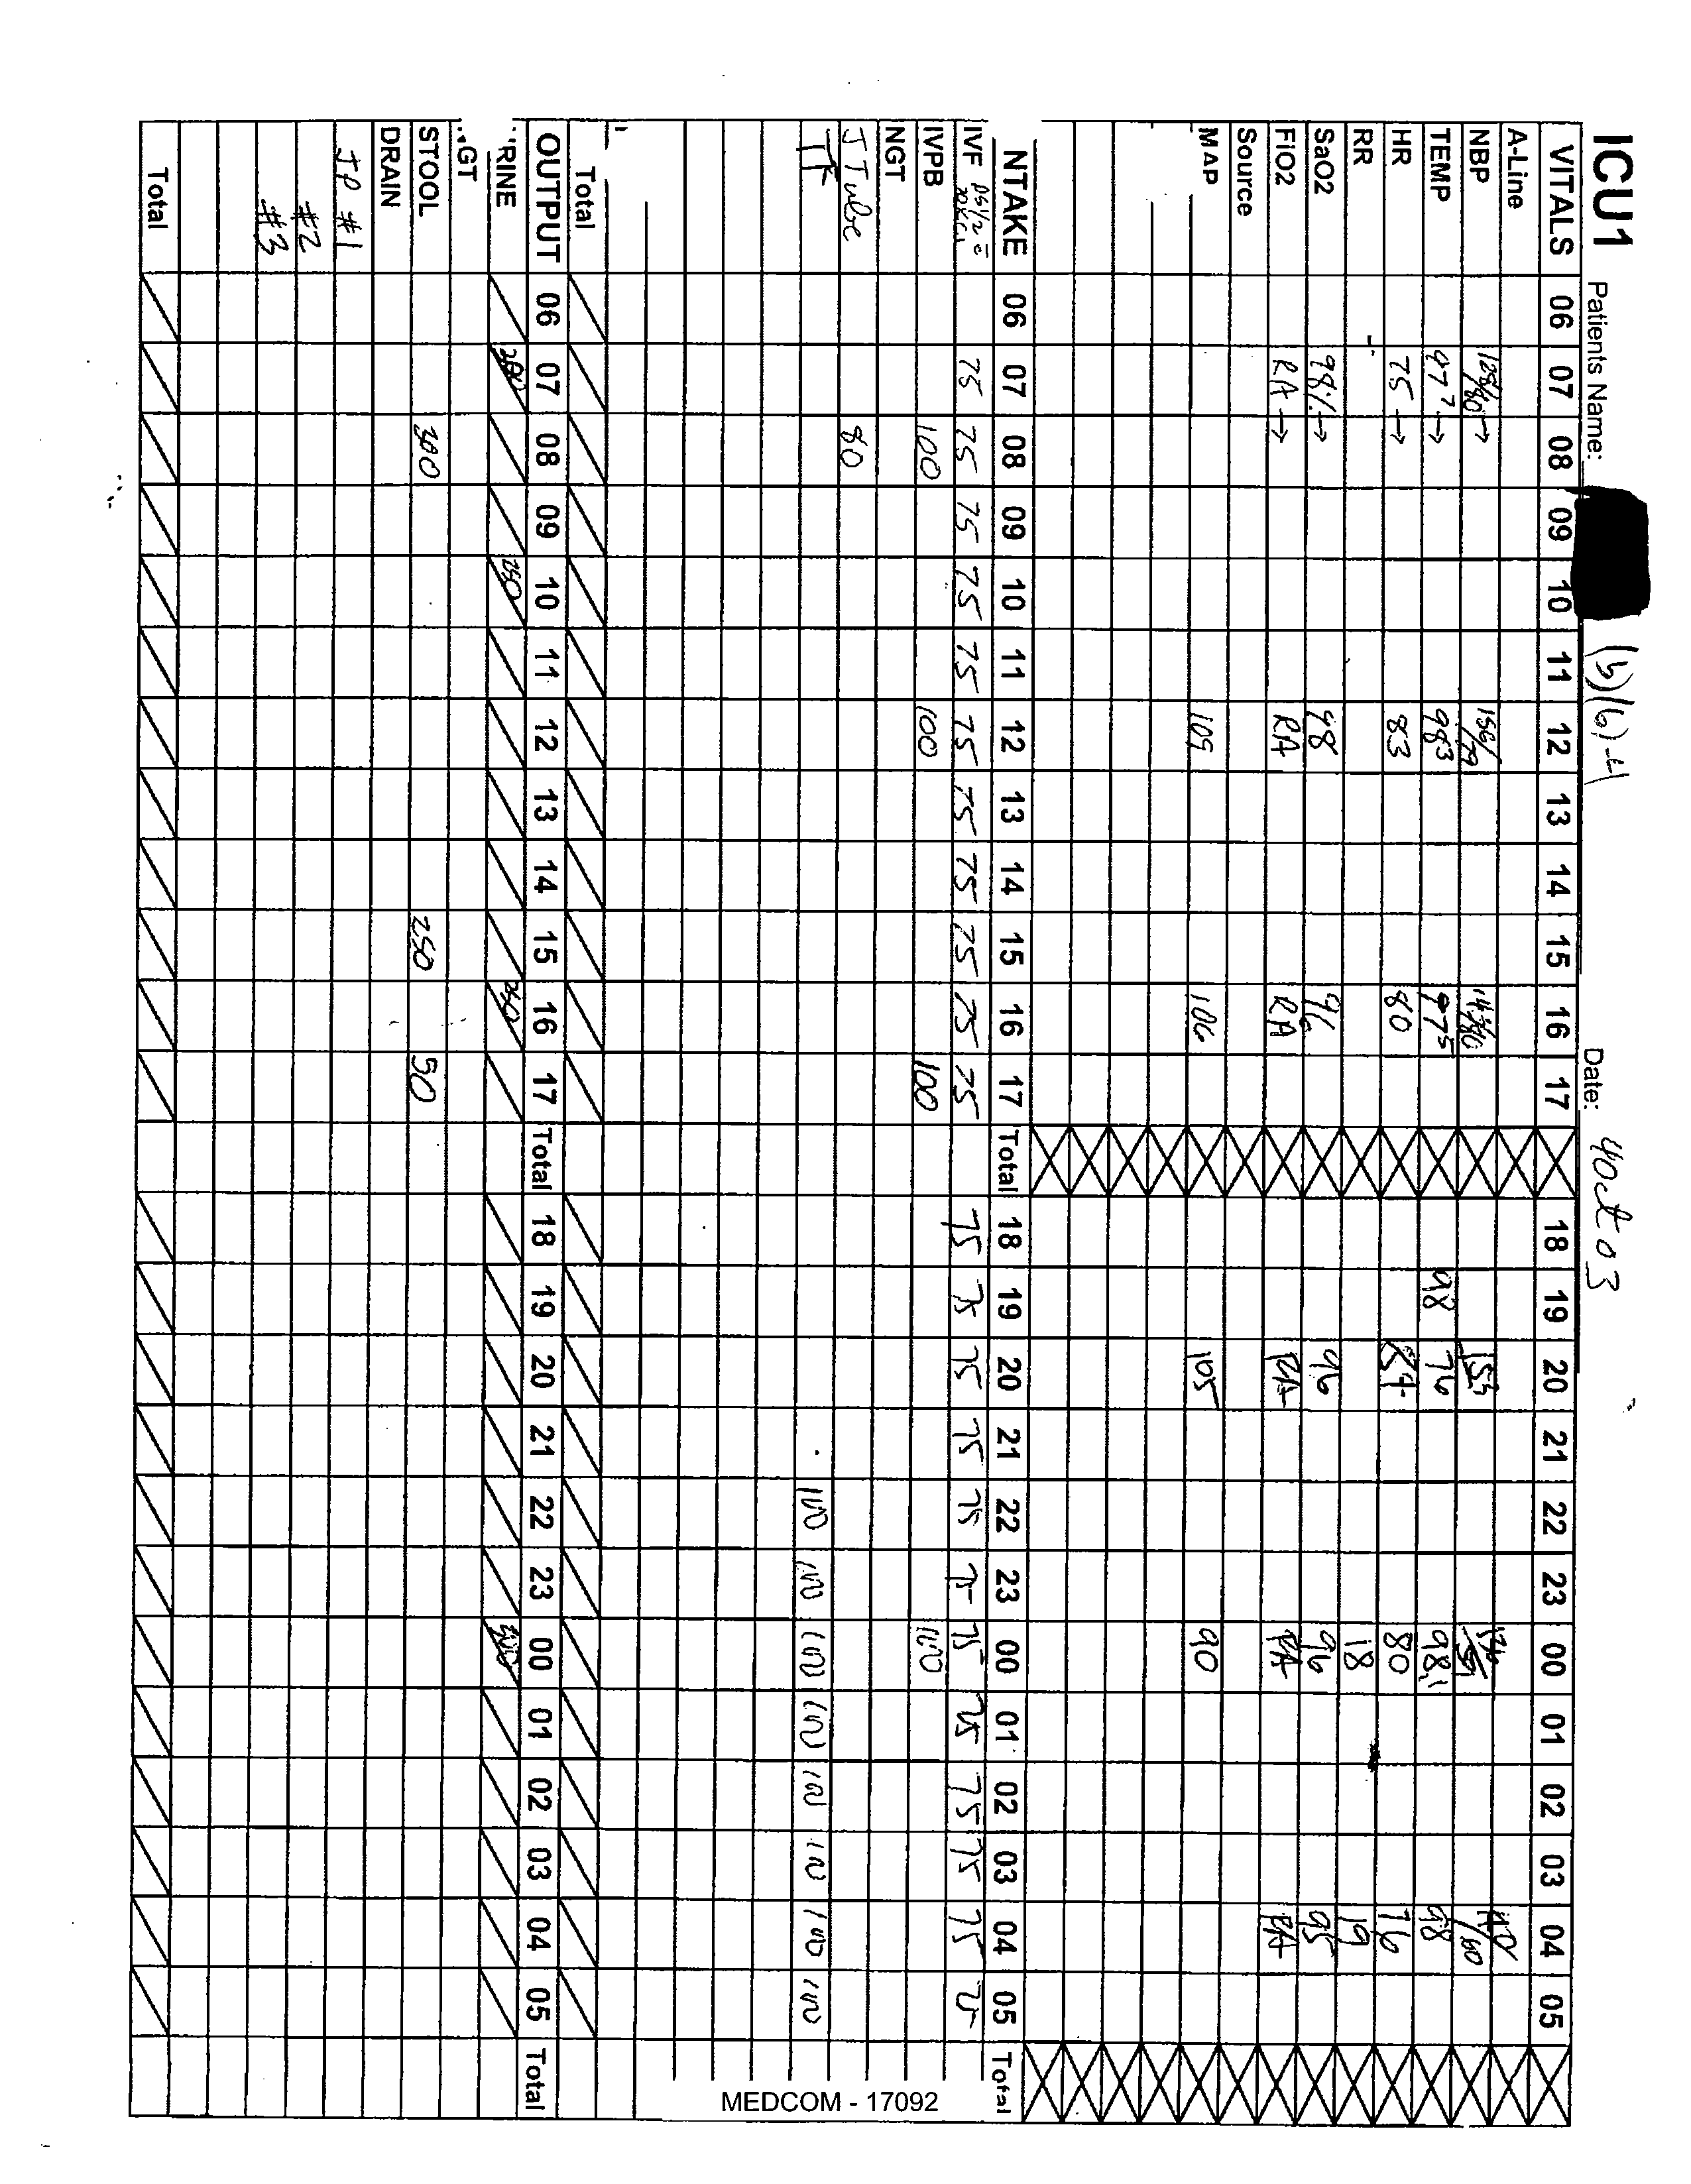 ICU1 Patients Name: (b)(6)-4 Date: 4 Oct 03
VITALS 06 07 08 09 10 11 12 13 14 15 16 17 18 19 20 21 22 23 00 01 02 03 04 05
A-Line
NBP 156/79 153
TEMP 97⁷ → 98³ 97⁵ 98 76 98.1 98
HR 75 → 83 80 80 76
RR 18 19
SaO2 98% → 98 96 96 96 95
FiO2 RA → RA RA RA RA RA
Source
MAP 109 106 105 90
NTAKE 06 07 08 09 10 11 12 13 14 15 16 17 Total 18 19 20 21 22 23 00 01 02 03 04 05 Total
IVF 75 75 75 75 75 75 75 75 75 75 75 75 75 75 75 75 75 75 75 75 75 75 75
IVPB 100 100 100 100
NGT
J Tube 80
TF 100 100 100 100 100 100 100 100
Total
OUTPUT 06 07 08 09 10 11 12 13 14 15 16 17 Total 18 19 20 21 22 23 00 01 02 03 04 05 Total
RINE 200 250 250
GT
STOOL 300 250 50
DRAIN
JP #1
#2
#3
Total
MEDCOM - 17092